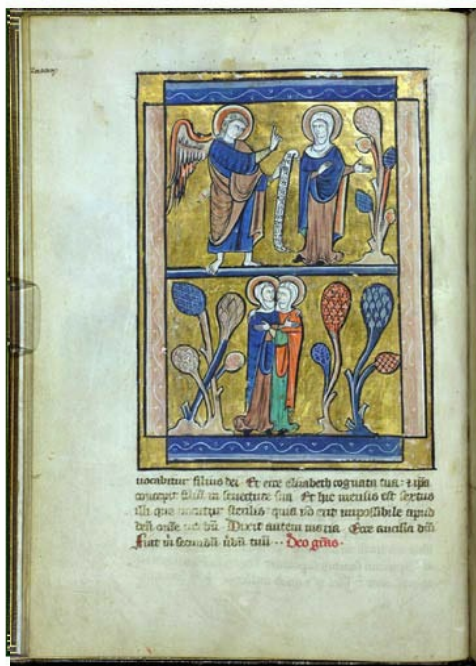 vocabitur filius dei. Et ecce elizabeth cognata tua: & ipsa
concepit filiū in senectute sua. Et hic mensis est sextus
illi que vocatur sterilis: quia nō erit impossibile apud
deū omne verbū. Dixit autem maria. Ecce ancilla dn̄i
fiat m̄ secundū v̄bū tuū. Deo gr̄as.